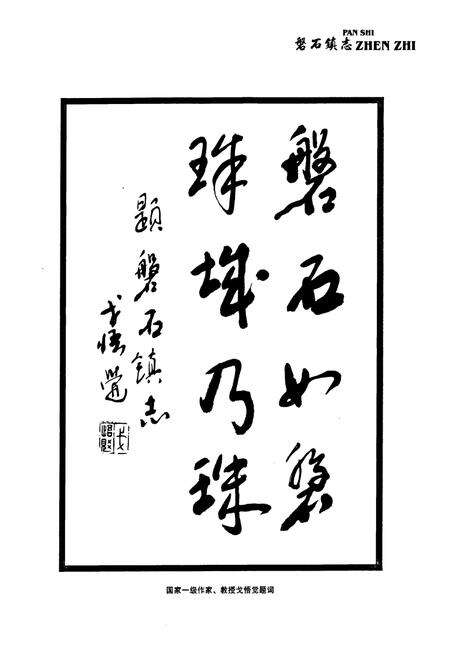 PAN SHI
磐石鎮志 ZHEN ZHI
磐石如磐
珠城乃珠
題磐石镇志
戈悟覺
国家一级作家、教授戈悟觉题词